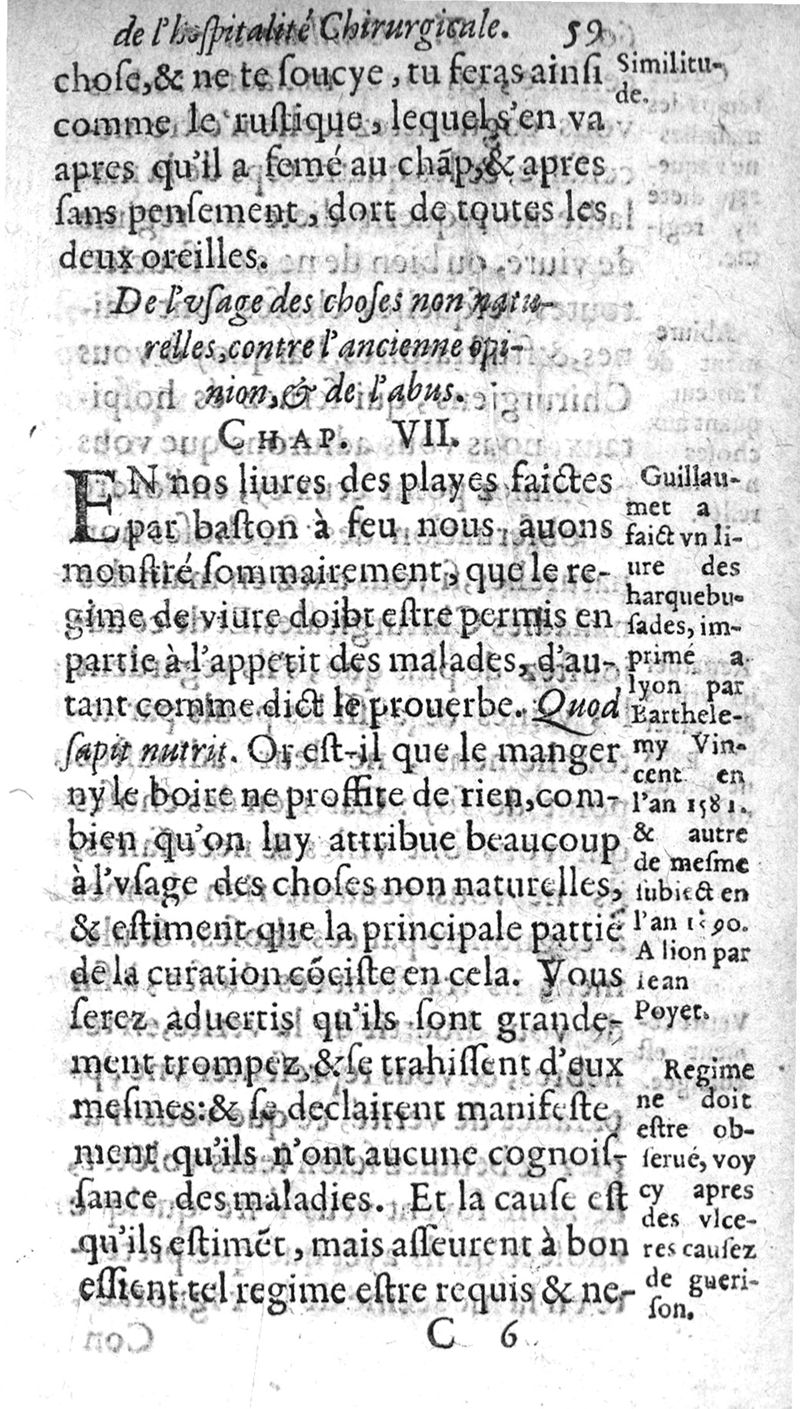 de l'hoſpitalité Chirurgicale. 59
choſe, & ne te ſoucye, tu feras ainſi
comme le ruſtique, lequel s'en va
apres qu'il a ſemé au chãp, & apres
ſans penſement, dort de toutes les
deux oreilles.
Similitu-
de.
De l'vſage des choſes non natu-
relles, contre l'ancienne opi-
nion, & de l'abus.
CHAP. VII.
EN nos liures des playes faictes
par baſton à feu nous auons
monſtré ſommairement, que le re-
gime de viure doibt eſtre permis en
partie à l'appetit des malades, d'au-
tant comme dict le prouerbe. Quod
ſapit nutrit. Or eſt-il que le manger
ny le boire ne proffite de rien, com-
bien qu'on luy attribue beaucoup
à l'vſage des choſes non naturelles,
& eſtiment que la principale partie
de la curation cõciſte en cela. Vous
ſerez aduertis qu'ils ſont grande-
ment trompez, & ſe trahiſſent d'eux
meſmes: & ſe declairent manifeſte
ment qu'ils n'ont aucune cognoiſ-
ſance des maladies. Et la cauſe eſt
qu'ils eſtimẽt, mais aſſeurent à bon
eſſient tel regime eſtre requis & ne-
Guillau-
met a
faict vn li-
ure des
harquebu-
ſades, im-
primé a
lyon par
Barthele-
my Vin-
cent en
l'an 1581.
& autre
de meſme
ſubiect en
l'an 1590.
A lion par
Iean
Poyet.
Regime
ne doit
eſtre ob-
ſerué, voy
cy apres
des vlce-
res cauſez
de gueri-
ſon.
C 6